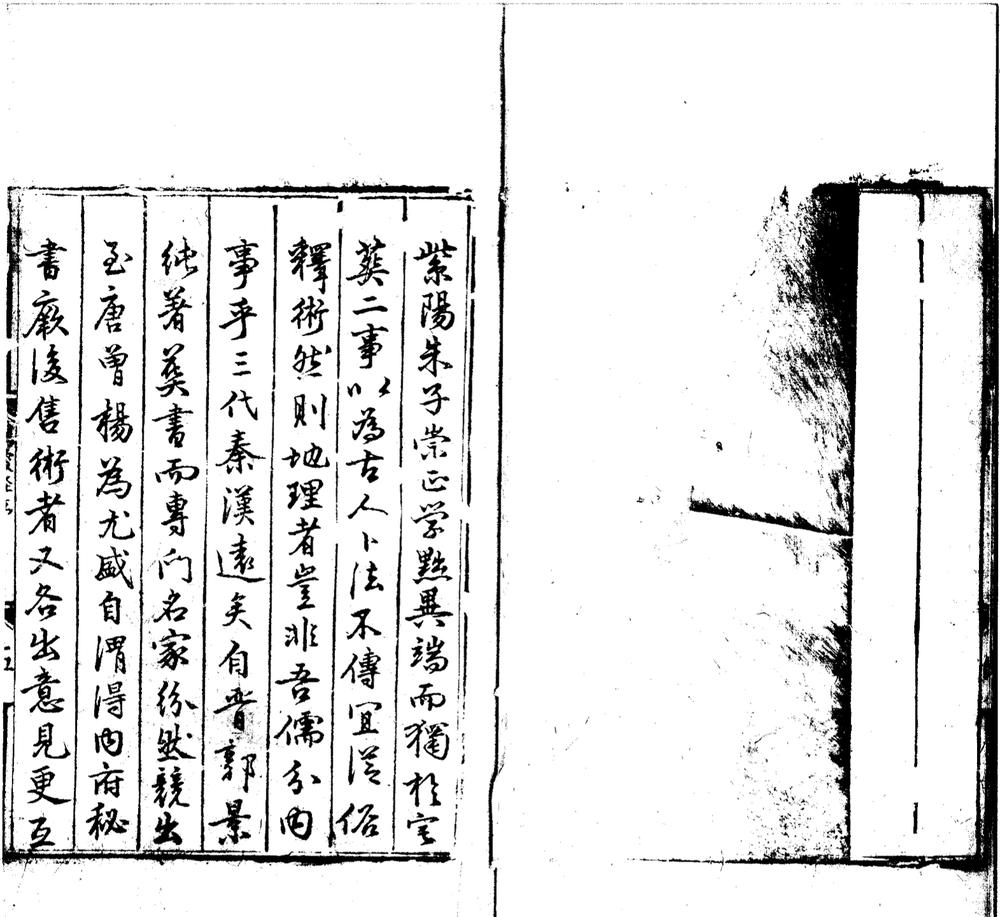 紫陽朱子崇正学黜異端而獨扵宅
葬二事以為古人卜法不傳宜從俗
釋術然則地理者豈非吾儒分内
事乎三代秦漢遠矣自晉郭景
純著葬書而專門名家紛然競出
至唐曾楊為尤盛自謂得内府秘
書厥後售術者又各出意見更互